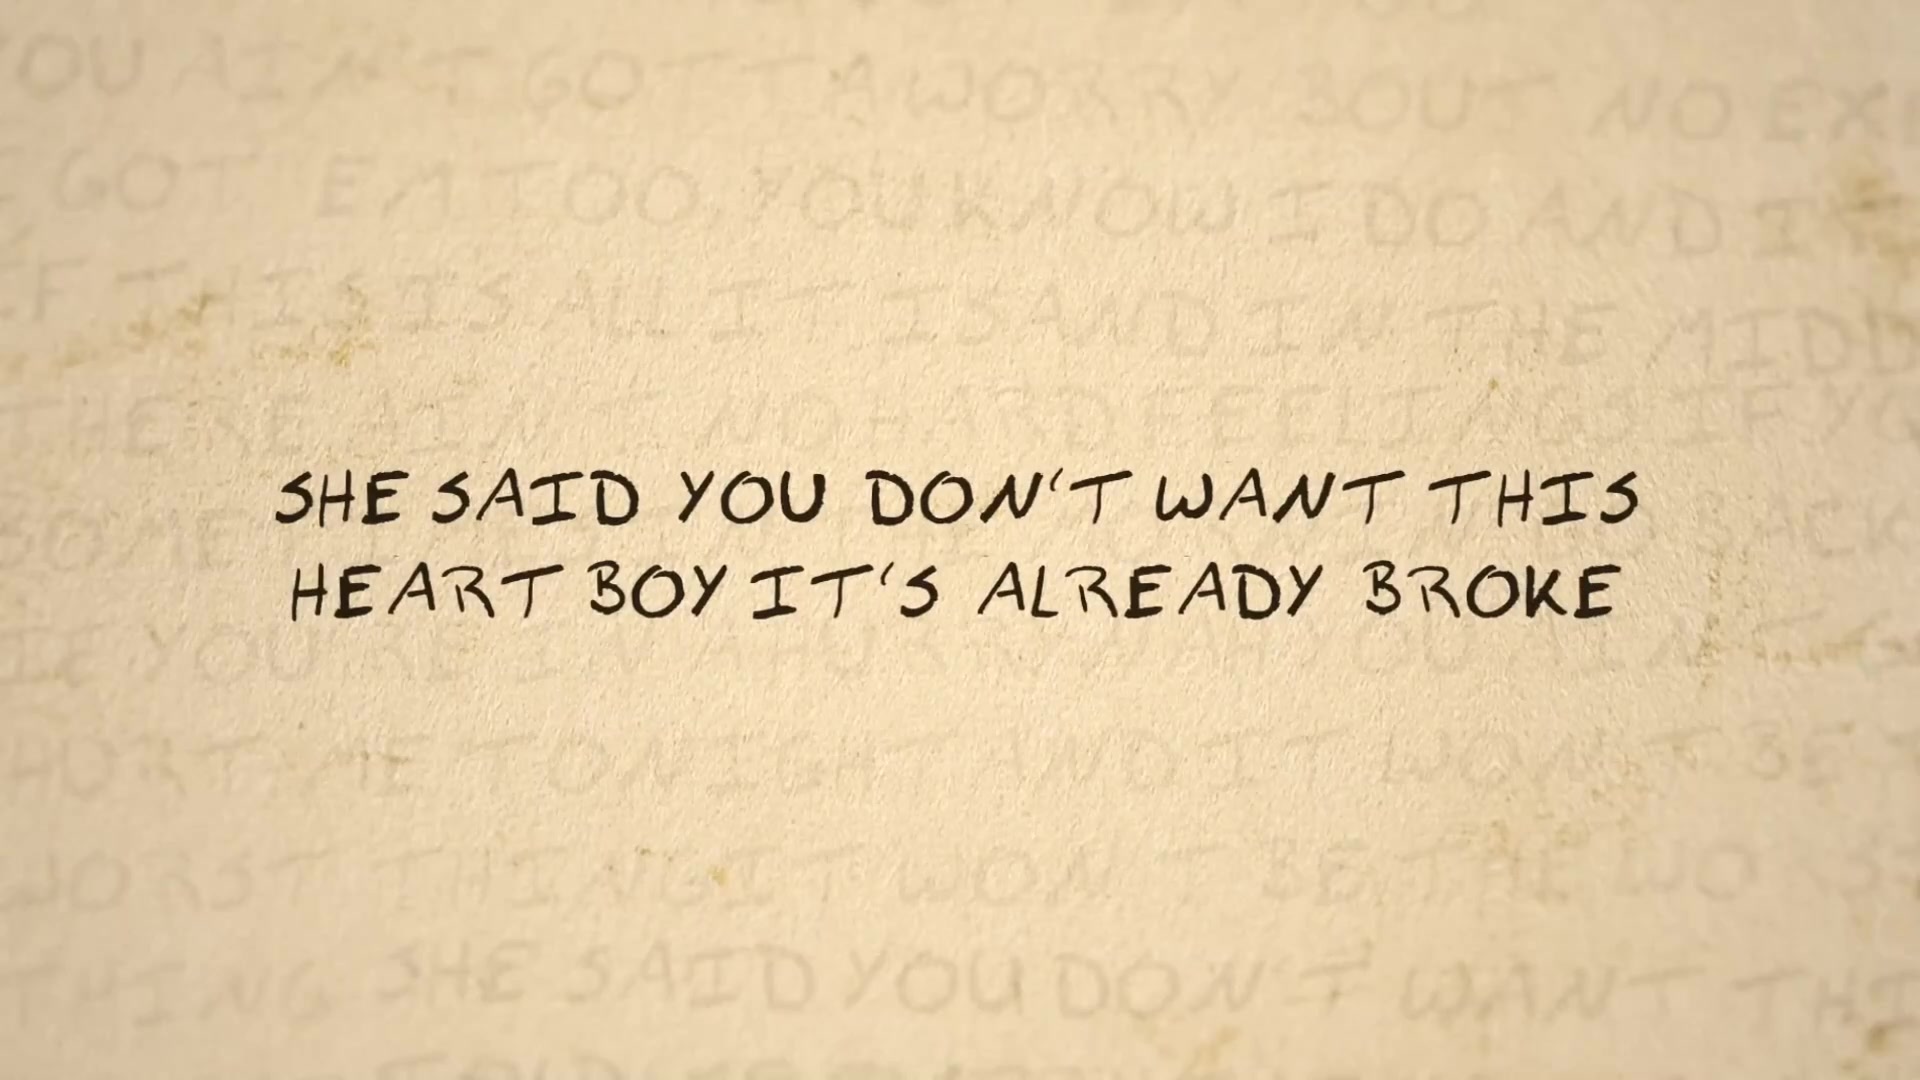 OU AIN'T GOTTA WORRY BOUT NO EX
GOT EM TOO YOU KNOW I DO AND I
IF THIS IS ALL IT IS AND IN THE MIDD
THERE AIN'T NO HARD FEELINGS IF YO
SHE SAID YOU DON'T WANT THIS
HEART BOY IT'S ALREADY BROKE
IF YOU'RE IN A HURRY
TONIGHT AND IT WON'T BE
WORST THING IT WON'T BE THE WORS
THING SHE SAID YOU DON'T WANT THI